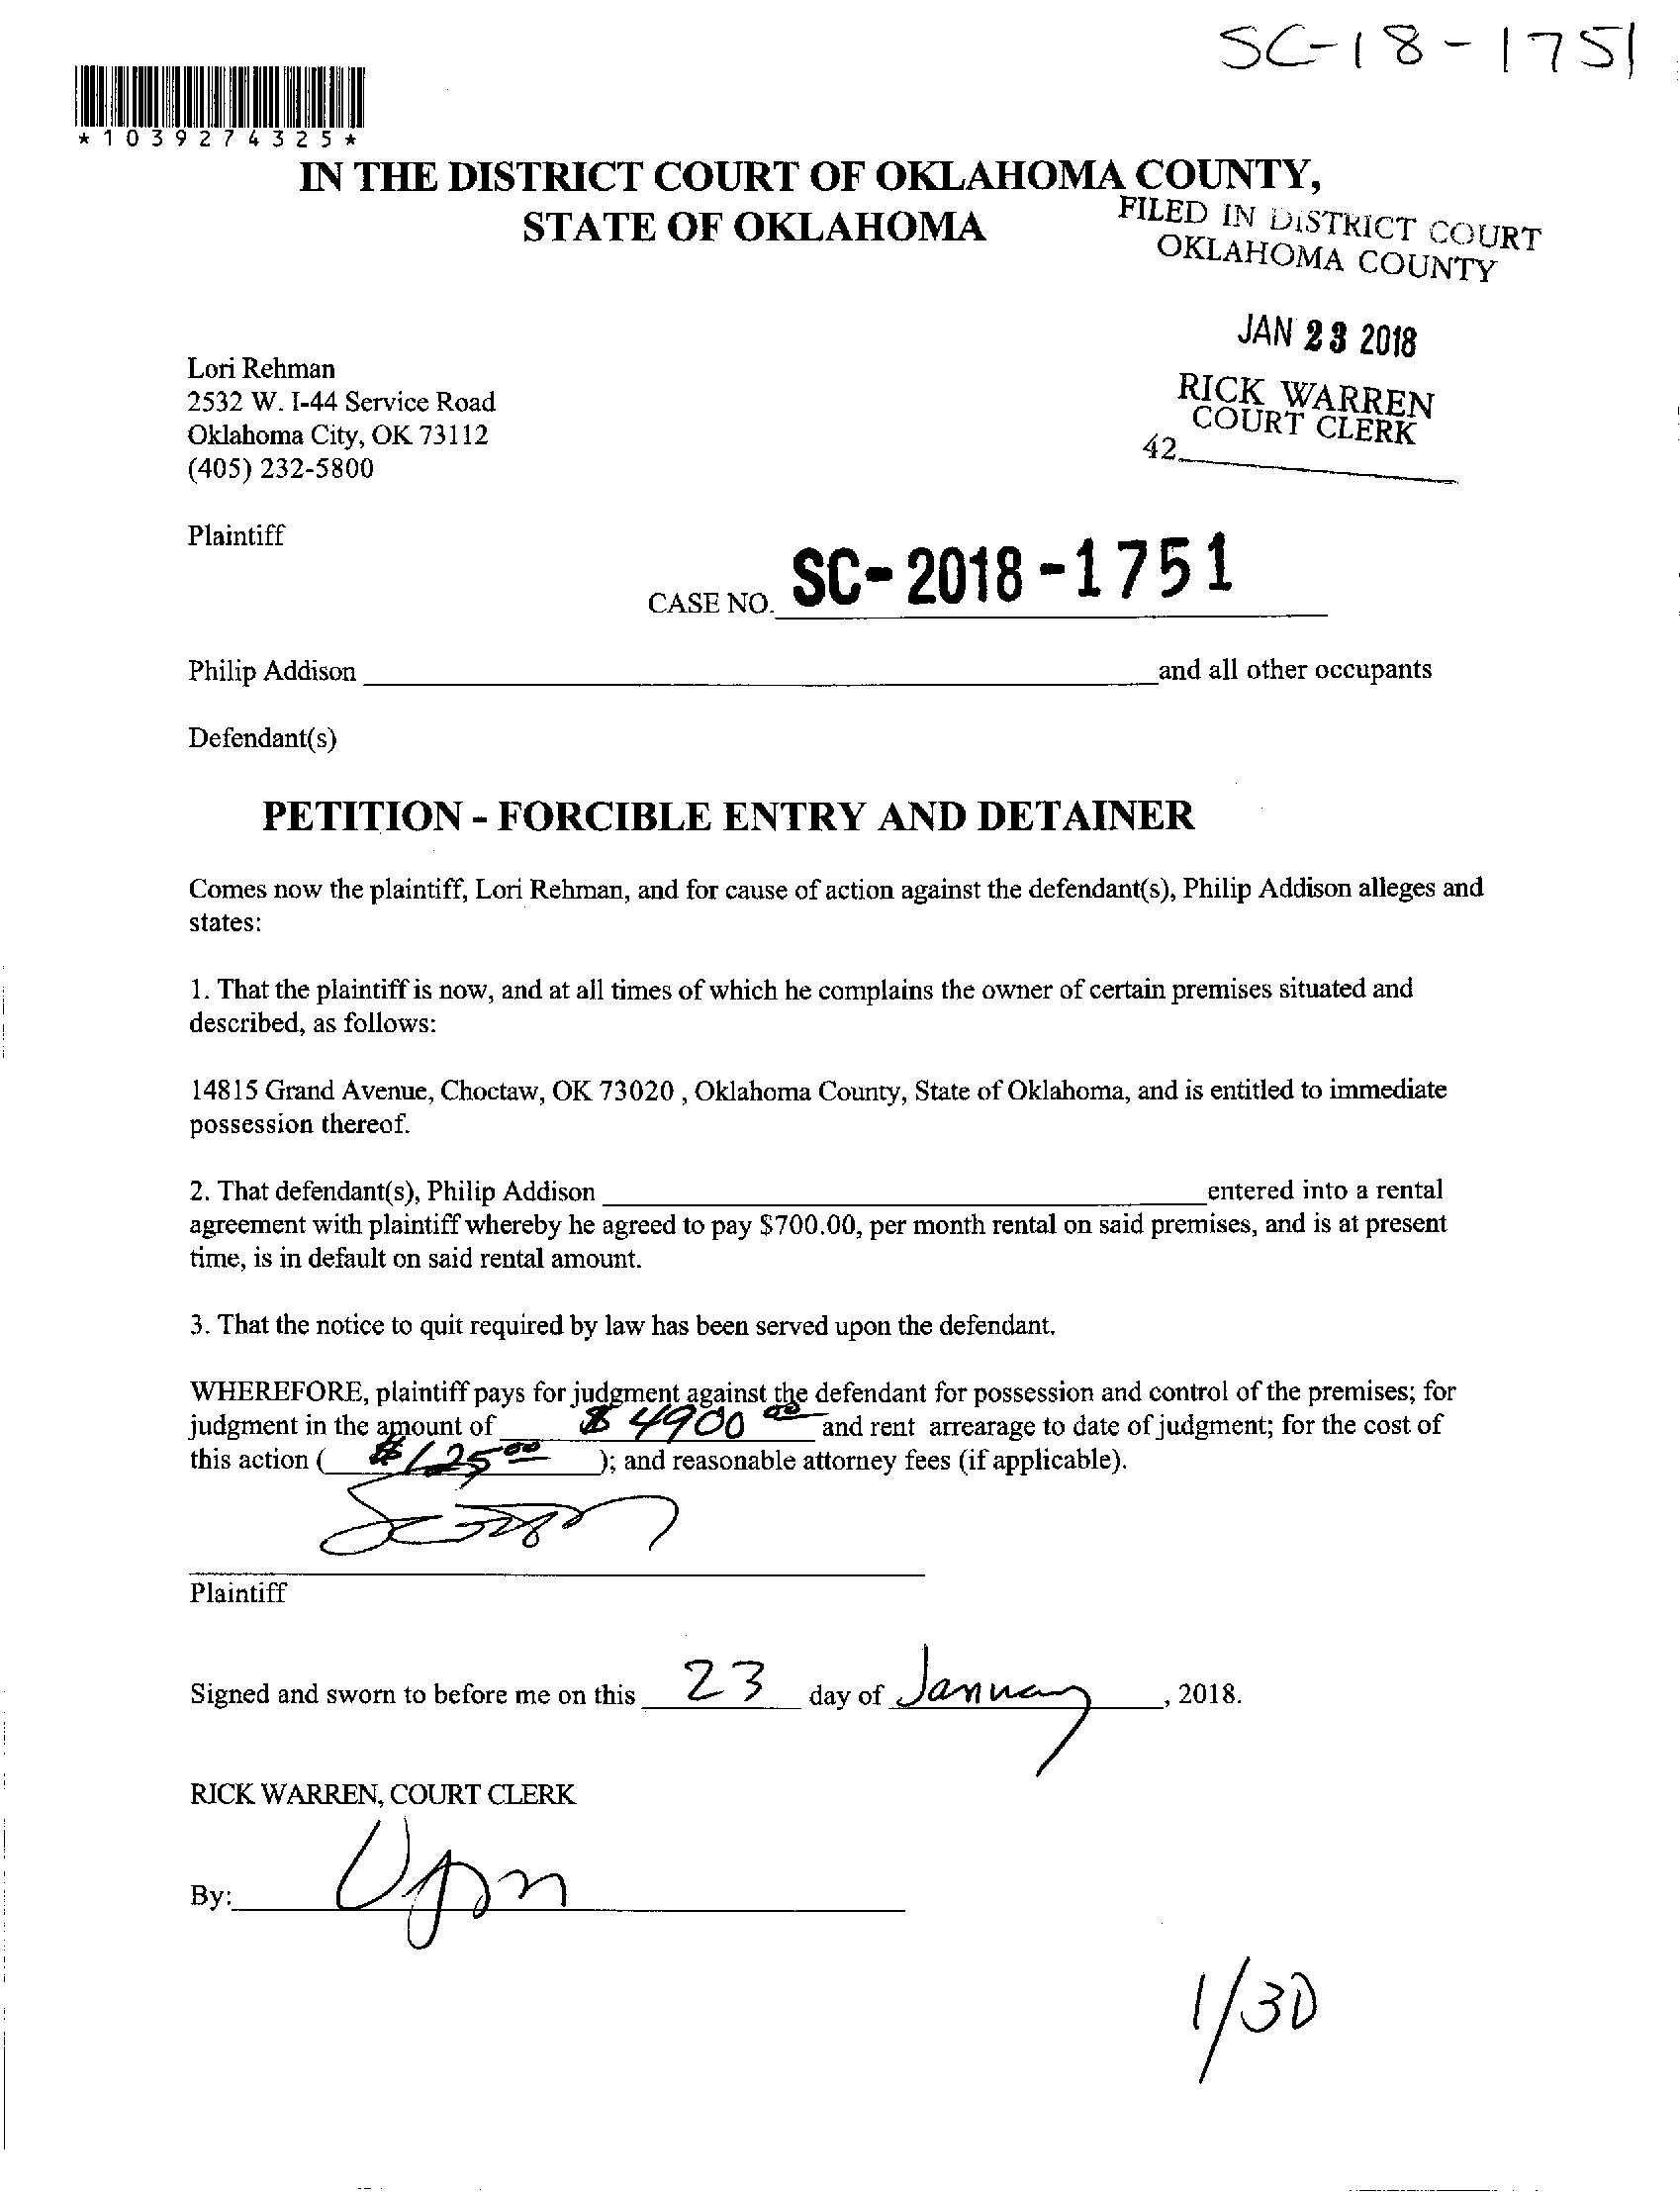 SC-18-1751
*1039274325*
IN THE DISTRICT COURT OF OKLAHOMA COUNTY,
STATE OF OKLAHOMA
FILED IN DISTRICT COURT
OKLAHOMA COUNTY
JAN 23 2018
RICK WARREN
COURT CLERK
42
Lori Rehman
2532 W. I-44 Service Road
Oklahoma City, OK 73112
(405) 232-5800
Plaintiff
CASE NO. SC-2018-1751
Philip Addison and all other occupants
Defendant(s)
PETITION - FORCIBLE ENTRY AND DETAINER
Comes now the plaintiff, Lori Rehman, and for cause of action against the defendant(s), Philip Addison alleges and
states:
1. That the plaintiff is now, and at all times of which he complains the owner of certain premises situated and
described, as follows:
14815 Grand Avenue, Choctaw, OK 73020 , Oklahoma County, State of Oklahoma, and is entitled to immediate
possession thereof.
2. That defendant(s), Philip Addison entered into a rental
agreement with plaintiff whereby he agreed to pay $700.00, per month rental on said premises, and is at present
time, is in default on said rental amount.
3. That the notice to quit required by law has been served upon the defendant.
WHEREFORE, plaintiff pays for judgment against the defendant for possession and control of the premises; for
judgment in the amount of $ 4900 00 and rent arrearage to date of judgment; for the cost of
this action ( $125 00 ); and reasonable attorney fees (if applicable).
Plaintiff
Signed and sworn to before me on this 23 day of January, 2018.
RICK WARREN, COURT CLERK
By:
1/30